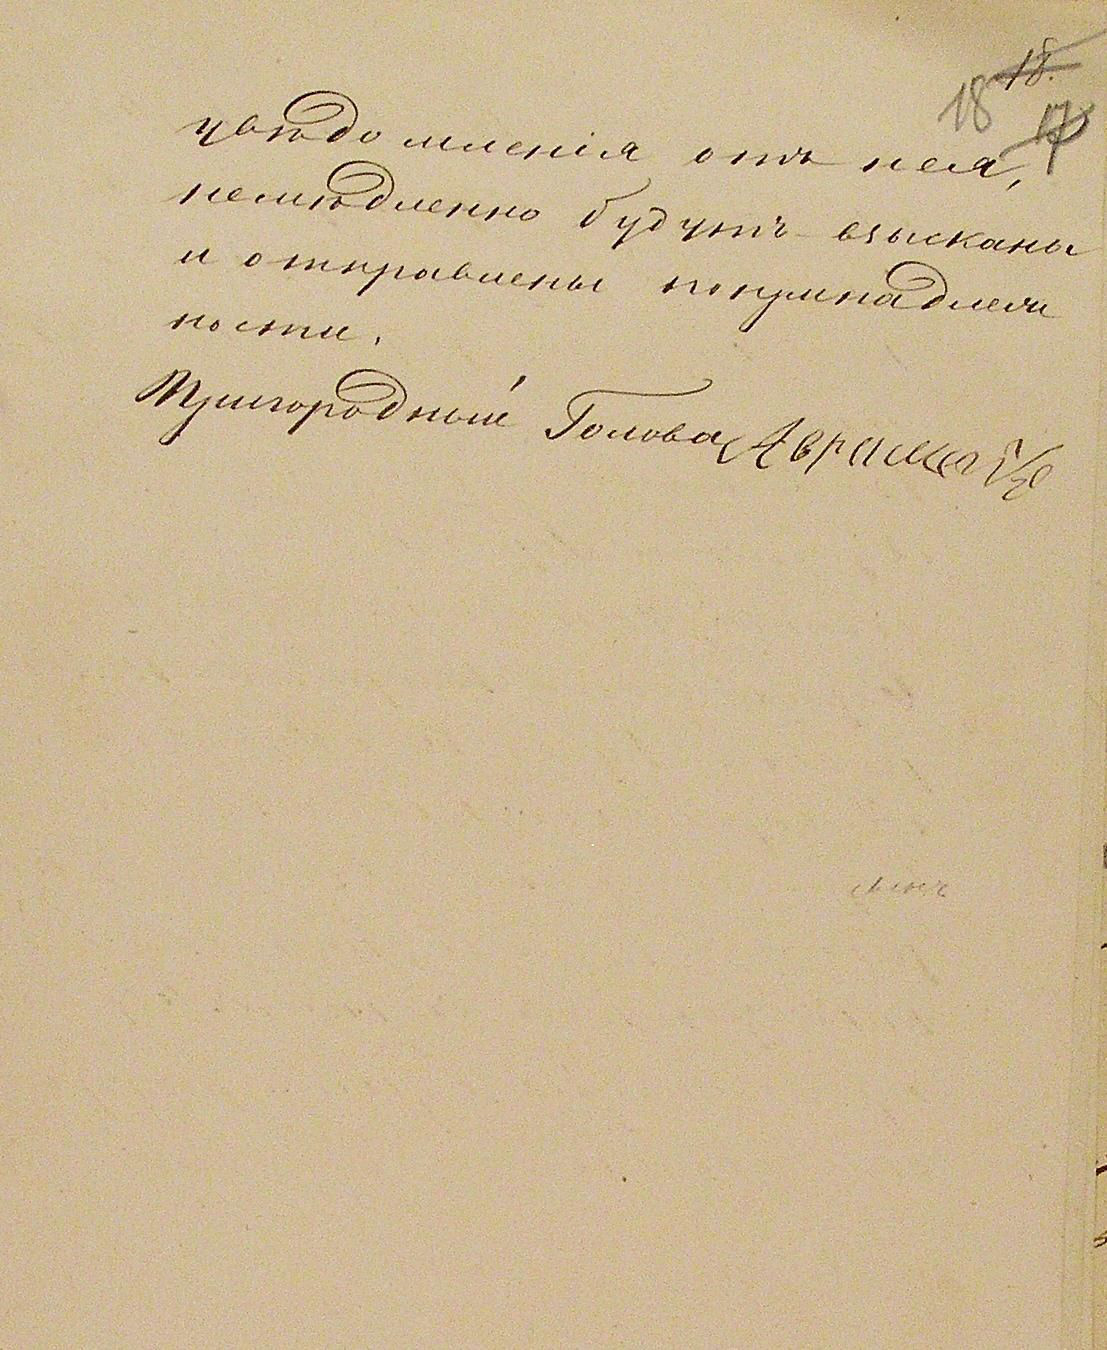 18.
18 17
увѣдомленія отъ нея,
немѣдленно будутъ взысканы
и отправлены попринадлеж
ности.
Пригородный Голова